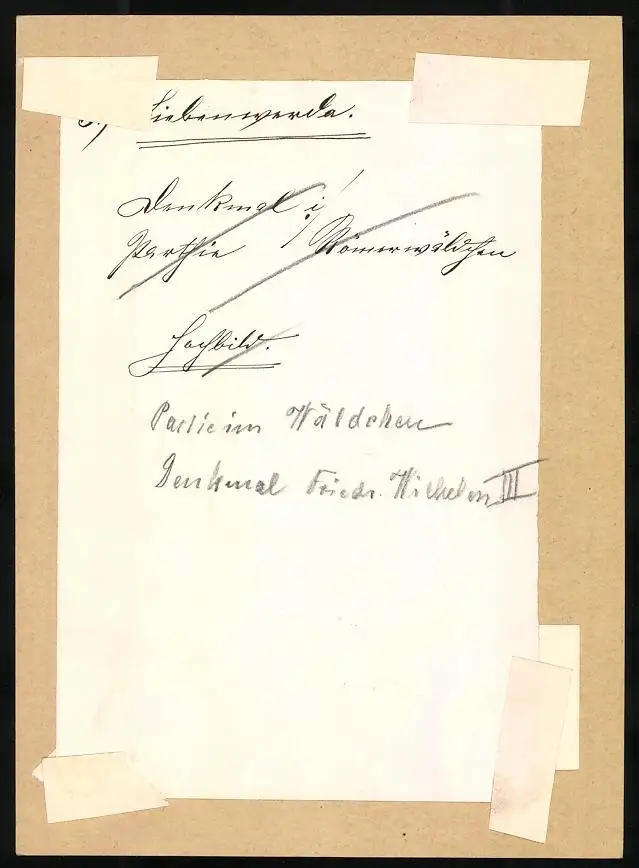 Liebenwerda.
Denkmal i/
Parthie Römerwäldchen
Hochbild.
Partie im Wäldchen
Denkmal Friedr. Wilhelm III